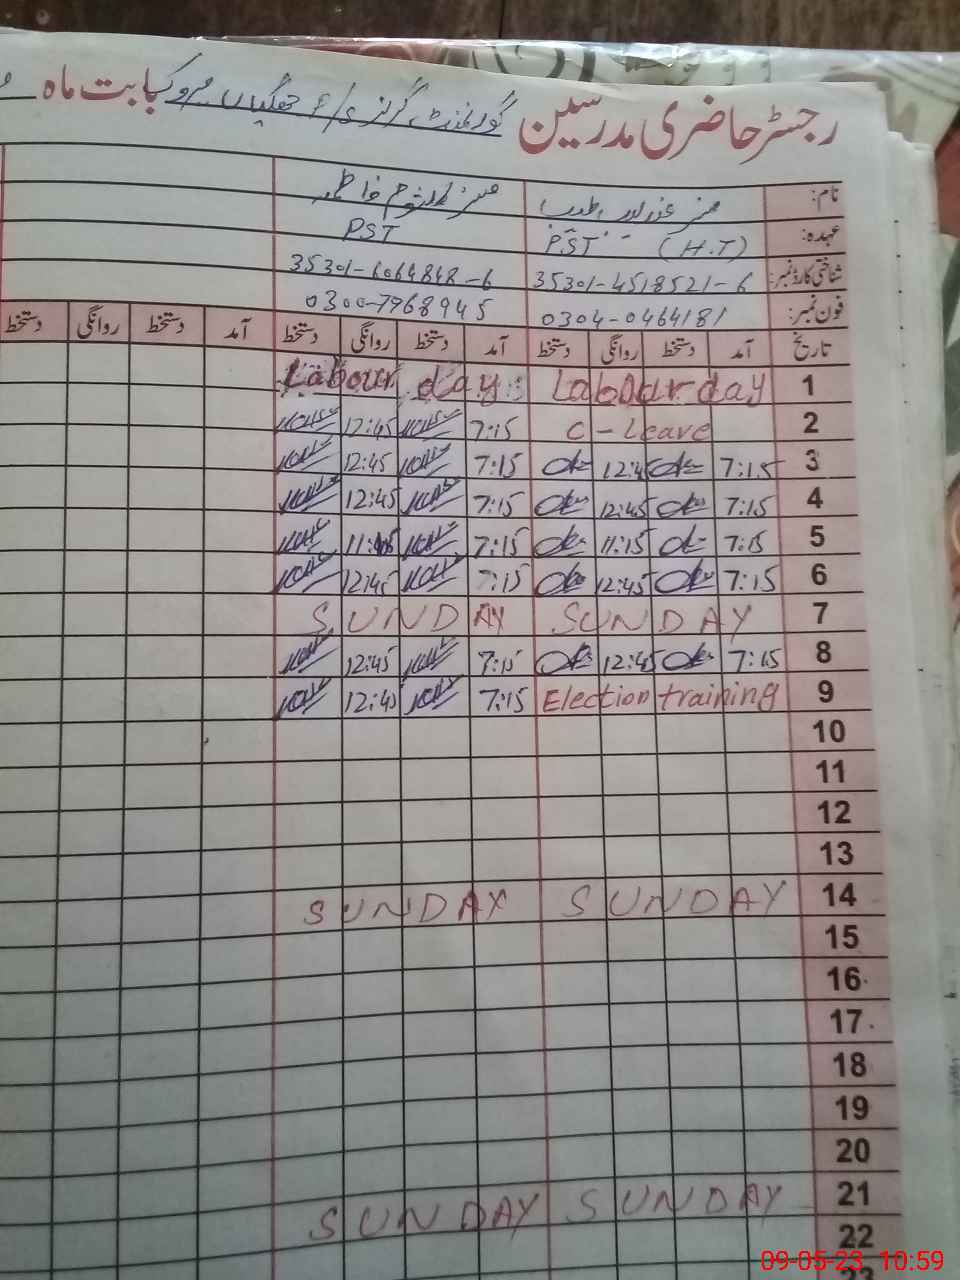 رجسٹر حاضری مدرسین گورنمنٹ گرلز بابت ماہ
نام: مسز مسز کلثوم فاطمہ
عہدہ: PST (H.T) PST
شناختی کارڈ نمبر: 35301-4518521-6 35301-6064848-6
فون نمبر: 0304-0464181 0300-7968945
تاریخ آمد دستخط روانگی دستخط آمد دستخط روانگی دستخط آمد دستخط روانگی دستخط
1 Labour day Labour day
2 C-Leave 7:15 12:45
3 7:15 12:45 7:15 12:45
4 7:15 12:45 7:15 12:45
5 7:15 11:15 7:15
6 7:15 12:45 7:15 12:45
7 SUNDAY SUNDAY
8 7:15 12:45 7:15 12:45
9 Election training 7:15 12:45
10
11
12
13
14 SUNDAY SUNDAY
15
16
17
18
19
20
21 SUNDAY SUNDAY
22
23
09-05-23 10:59